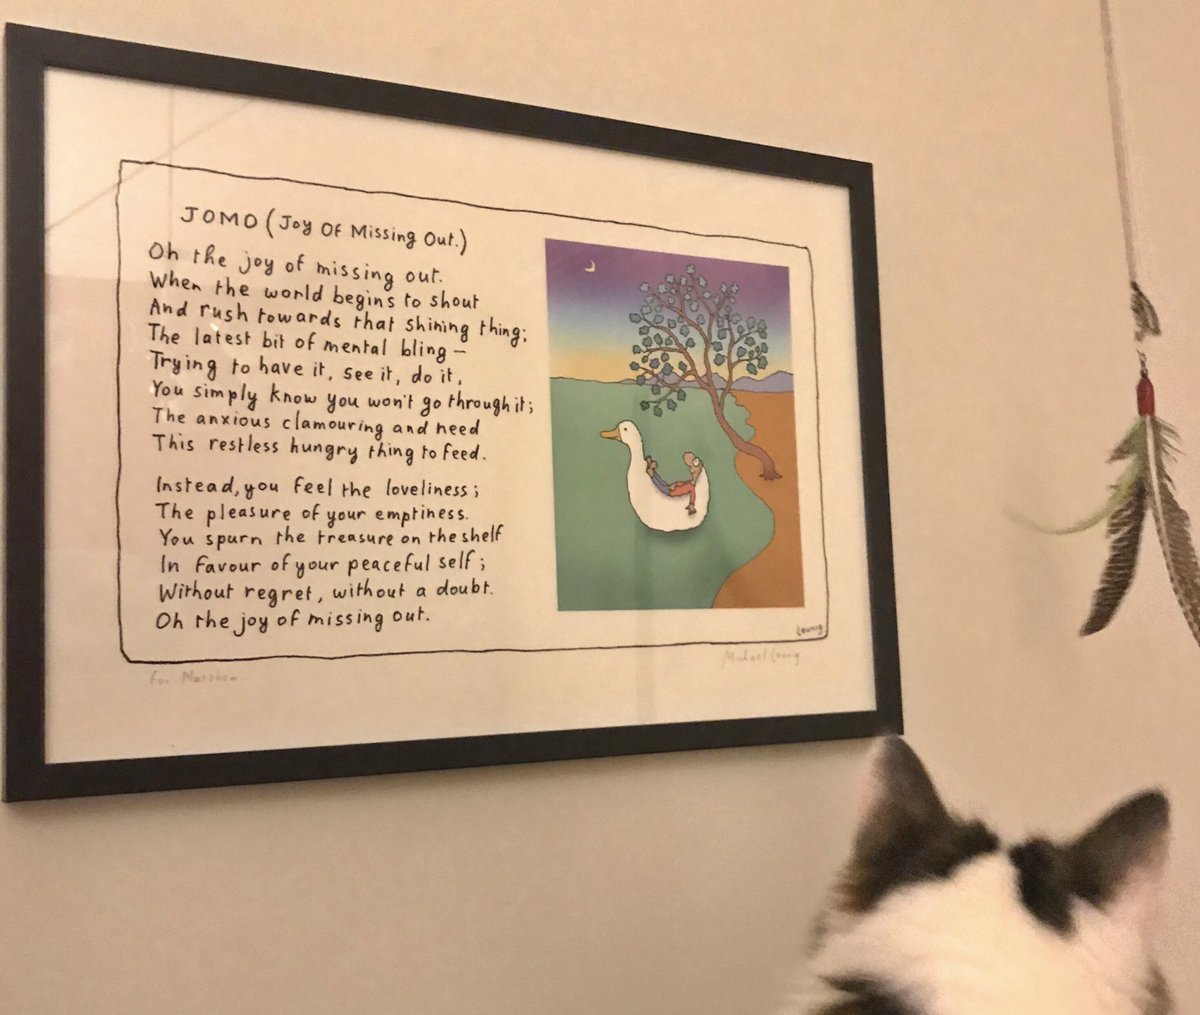 JOMO (Joy Of Missing Out.)
Oh the joy of missing out.
When the world begins to shout
And rush towards that shining thing;
The latest bit of mental bling —
Trying to have it, see it, do it,
You simply know you won't go through it;
The anxious clamouring and need
This restless hungry thing to feed.
Instead, you feel the loveliness;
The pleasure of your emptiness.
You spurn the treasure on the shelf
In favour of your peaceful self;
Without regret, without a doubt.
Oh the joy of missing out.
Leunig
For Matthew.
Michael Leunig